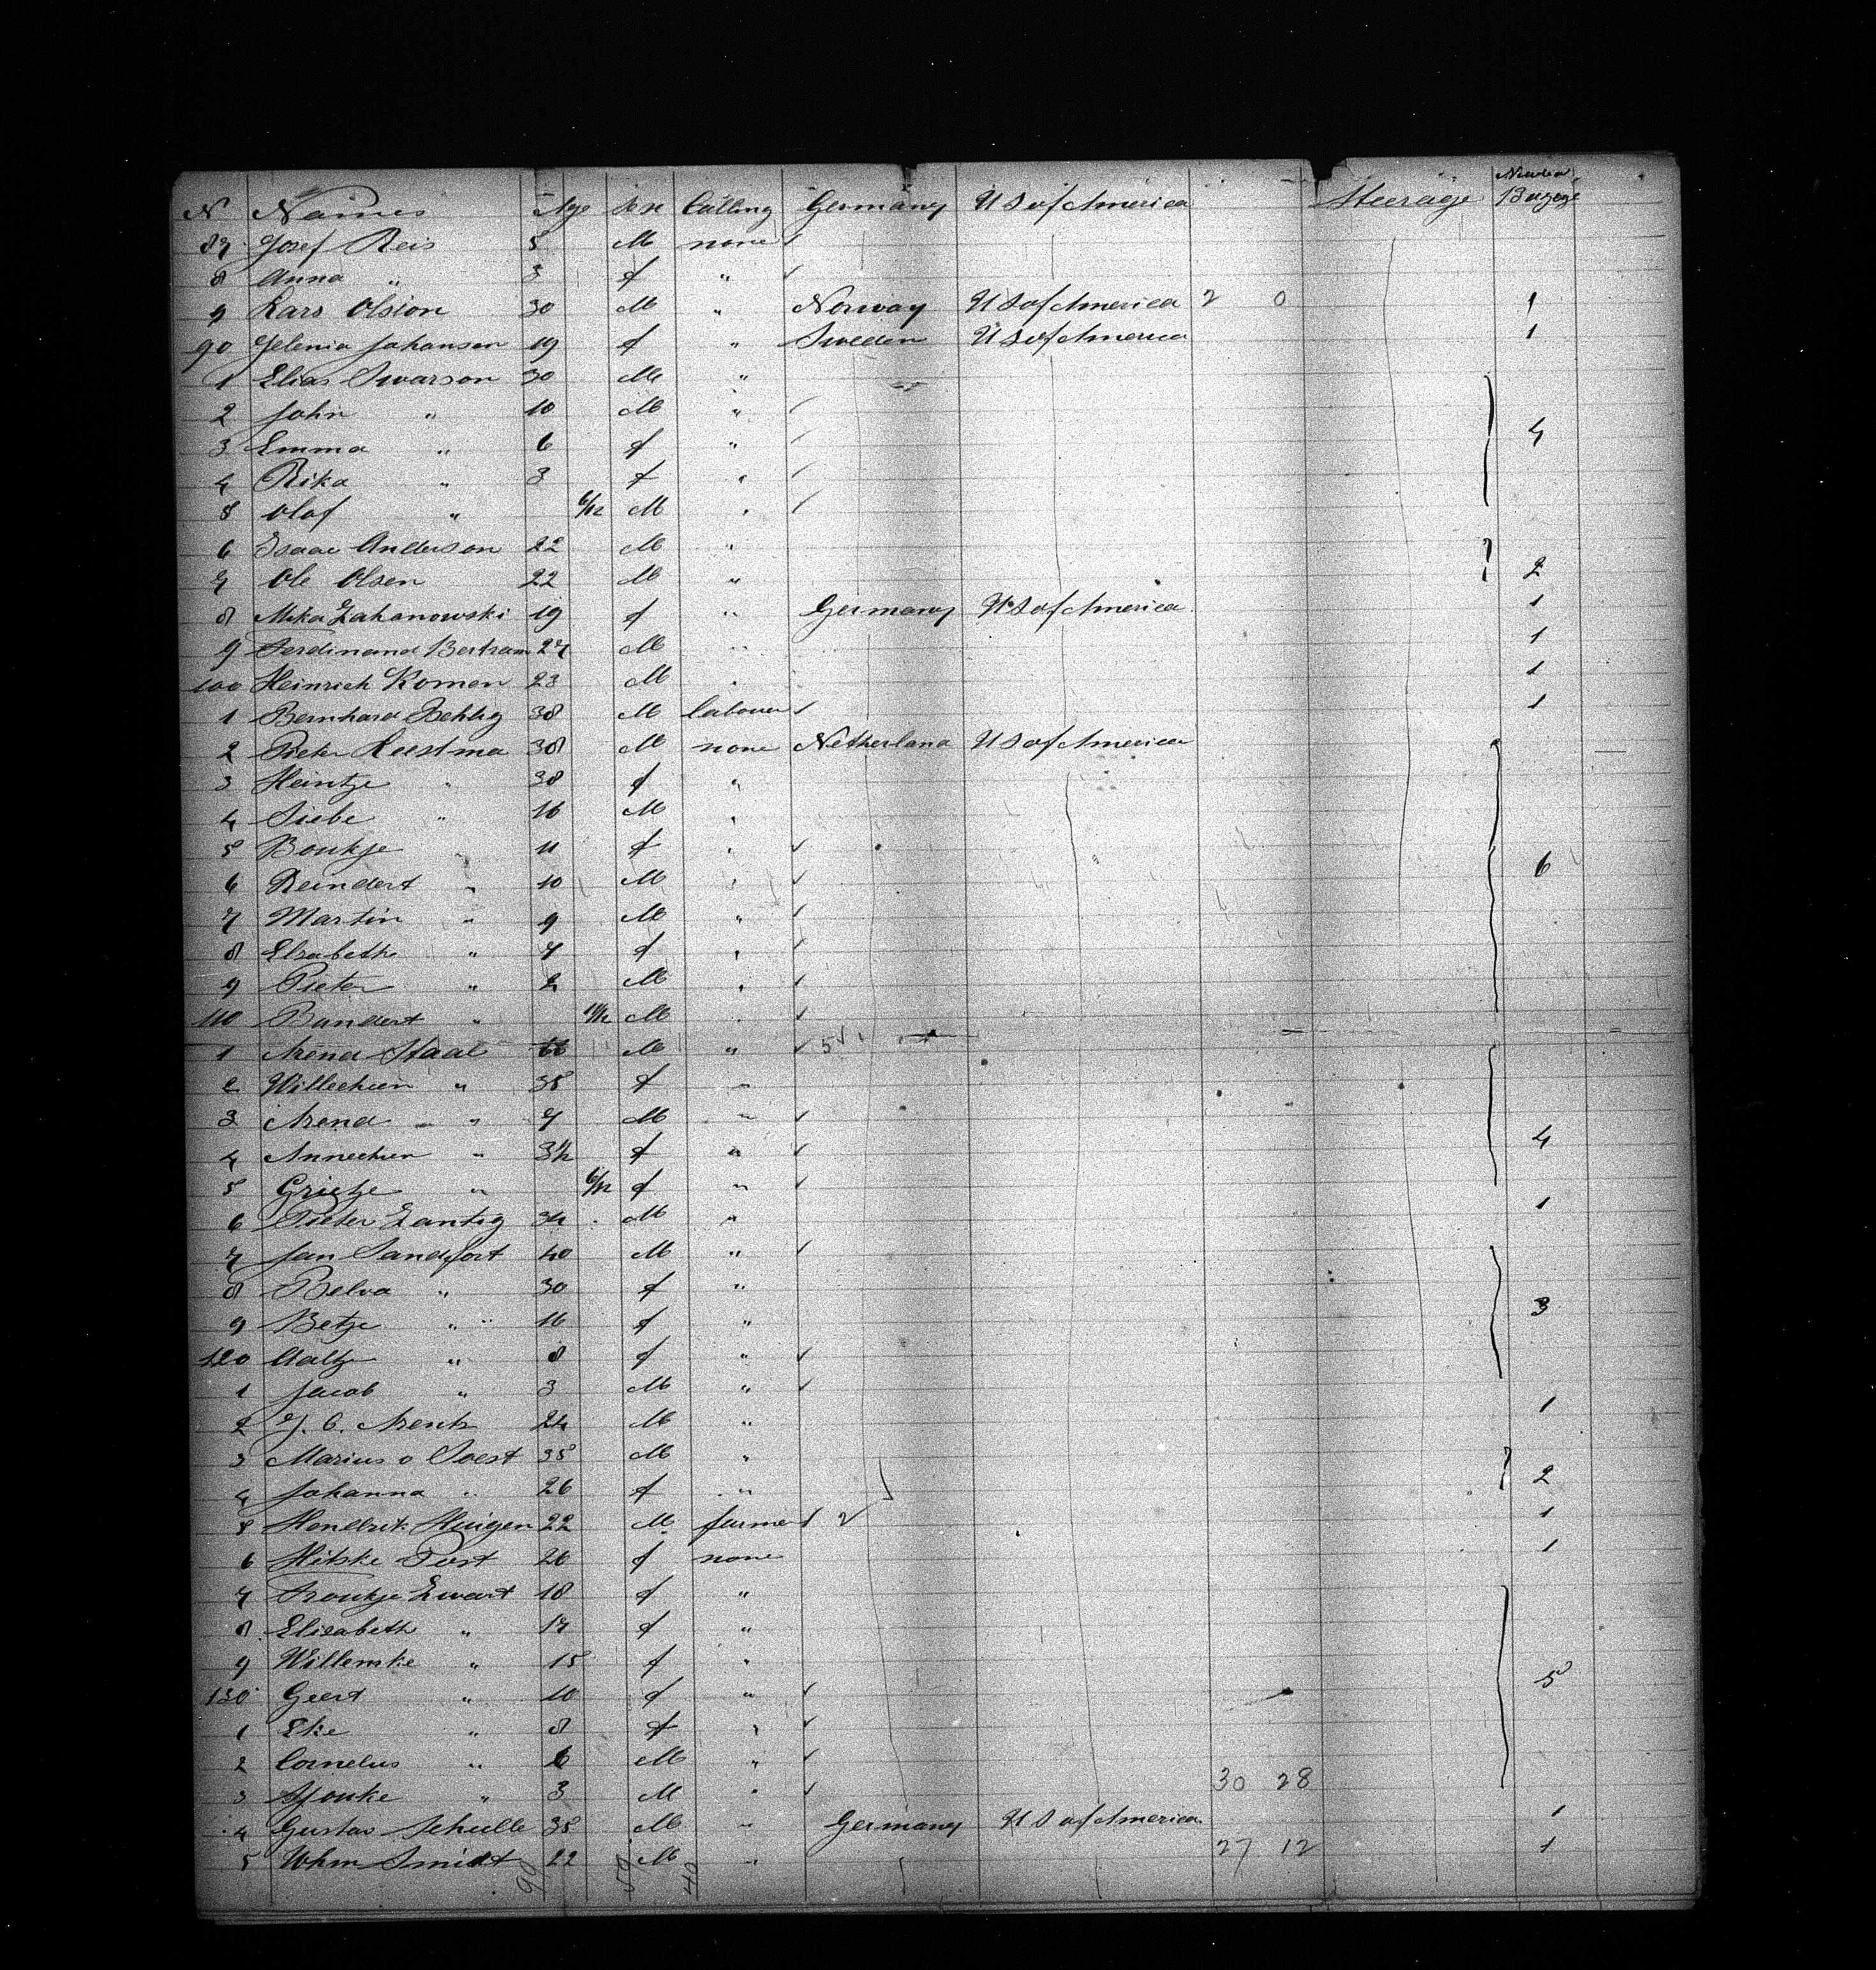 N Names Age Sex Calling Germany U S of America Steerage Number Bagage
87 Josef Reis 5 M none
8 Anna " 3 f "
9 Lars Olsson 30 M " Norway U S of America 2 0 1
90 Johansen 19 f " Sweden U S of America 1
1 Elias Swarson 30 M "
2 John " 10 M "
3 Emma " 6 f " 4
4 Rika " 3 f "
5 Olof " 6/12 M "
6 Isaac Anderson 22 M "
7 Ole Olsen 22 M " 2
8 Mika Zahanowski 19 f " Germany U S of America 1
9 Ferdinand Bertram 27 M " 1
100 Heinrich Komen 23 M " 1
1 Bernhard 38 M labourer 1
2 Pieter 38 M none Netherland U S of America
3 Heintje " 38 f "
4 Siebe " 16 M "
5 Boukje " 11 f "
6 Reindert " 10 M " 6
7 Martin " 9 M "
8 Elsabeth " 7 f "
9 Pieter " 2 M "
110 Bundert " 11/12 M "
1 Arend Staal M "
2 Willechien " 35 f "
3 Arend " 7 M "
4 Annechien " f " 4
5 Grietje " 6/12 f "
6 Pieter Lantig 34 M " 1
7 Jan Sandfort 40 M "
8 Belva " 30 f "
9 Betje " 16 f " 3
120 Aaltje " 8 f "
1 Jacob " 3 M "
2 J. C. Arentz 24 M " 1
3 Marius v Soest 35 M "
4 Johanna " 26 f " 2
5 Hendrik Huigen 22 M farmer 1
6 Hitske Post 26 f none 1
7 Froukje Zwart 18 f "
8 Elisabeth " 17 f "
9 Willemke " 15 f "
130 Geert " 10 f " 5
1 Eke " 8 f "
2 Cornelus " 6 M "
3 Sjouke " 3 M " 30 28
4 Gustav Schulle 35 M " Germany U S of America 1
5 Whm Smidt 22 M " 27 12 1
90 50 40